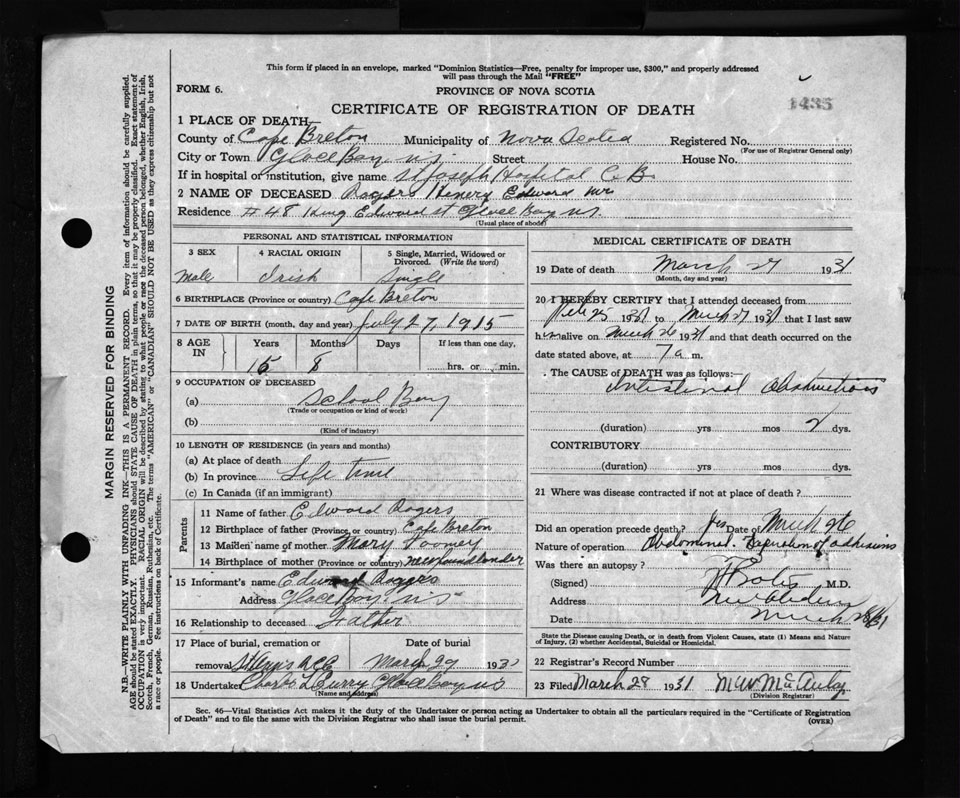 This form if placed in an envelope, marked "Dominion Statistics—Free, penalty for improper use, $300," and properly addressed
will pass through the Mail "FREE"
FORM 6.
PROVINCE OF NOVA SCOTIA
1435
CERTIFICATE OF REGISTRATION OF DEATH
1 PLACE OF DEATH—
County of Cape Breton Municipality of Nova Scotia Registered No.
(For use of Registrar General only)
City or Town Glace Bay N.S. Street House No.
If in hospital or institution, give name St Joseph Hospital C.B.
2 NAME OF DECEASED Rogers Henery Edward Mr
Residence # 48 King Edward St Glace Bay NS
(Usual place of abode)
PERSONAL AND STATISTICAL INFORMATION
3 SEX 4 RACIAL ORIGIN 5 Single, Married, Widowed or Divorced. (Write the word)
Male Irish Single
6 BIRTHPLACE (Province or country) Cape Breton
7 DATE OF BIRTH (month, day and year) July 27, 1915
8 AGE IN Years Months Days If less than one day,
15 8 hrs. or min.
9 OCCUPATION OF DECEASED
(a) School Boy
(Trade or occupation or kind of work)
(b)
(Kind of industry)
10 LENGTH OF RESIDENCE (in years and months)
(a) At place of death
(b) In province Life time
(c) In Canada (if an immigrant)
Parents
11 Name of father Edward Rogers
12 Birthplace of father (Province or country) Cape Breton
13 Maiden name of mother Mary Toomey
14 Birthplace of mother (Province or country) Newfoundlander
15 Informant's name Edward Rogers
Address Glace Bay NS
16 Relationship to deceased Father
17 Place of burial, cremation or removal Date of burial
March 29 193
18 Undertaker Charles L Curry Glace Bay NS
(Name and address)
MEDICAL CERTIFICATE OF DEATH
19 Date of death March 27 1931
(Month, day and year)
20 I HEREBY CERTIFY that I attended deceased from
Feb 25 1931 to March 27 1931 that I last saw
him alive on March 26 1931 and that death occurred on the
date stated above, at 7 a m.
The CAUSE of DEATH was as follows:—
Intestinal Obstructions
(duration) yrs mos 2 dys.
CONTRIBUTORY
(duration) yrs mos dys.
21 Where was disease contracted if not at place of death?
Did an operation precede death? Yes Date of March 26
Nature of operation Abdominal. Separation of adhesions
Was there an autopsy?
(Signed) M.D.
Address New Aberdeen
Date March 28/31
State the Disease causing Death, or in death from Violent Causes, state (1) Means and Nature
of Injury, (2) whether Accidental, Suicidal or Homicidal.
22 Registrar's Record Number
23 Filed March 28 1931
(Division Registrar)
Sec. 46—Vital Statistics Act makes it the duty of the Undertaker or person acting as Undertaker to obtain all the particulars required in the "Certificate of Registration
of Death" and to file the same with the Division Registrar who shall issue the burial permit.
(OVER)
MARGIN RESERVED FOR BINDING
N.B.—WRITE PLAINLY WITH UNFADING INK—THIS IS A PERMANENT RECORD. Every item of information should be carefully supplied.
AGE should be stated EXACTLY. PHYSICIANS should STATE CAUSE OF DEATH in plain terms, so that it may be properly classified. Exact statement of
OCCUPATION is very important. RACIAL ORIGIN will be described by stating to what people or race the deceased person belonged, whether English, Irish,
Scotch, French, German, Russian, Ruthenian, etc. The terms "AMERICAN" or "CANADIAN" SHOULD NOT BE USED as they express citizenship but not
a race or people. See instructions on back of Certificate.